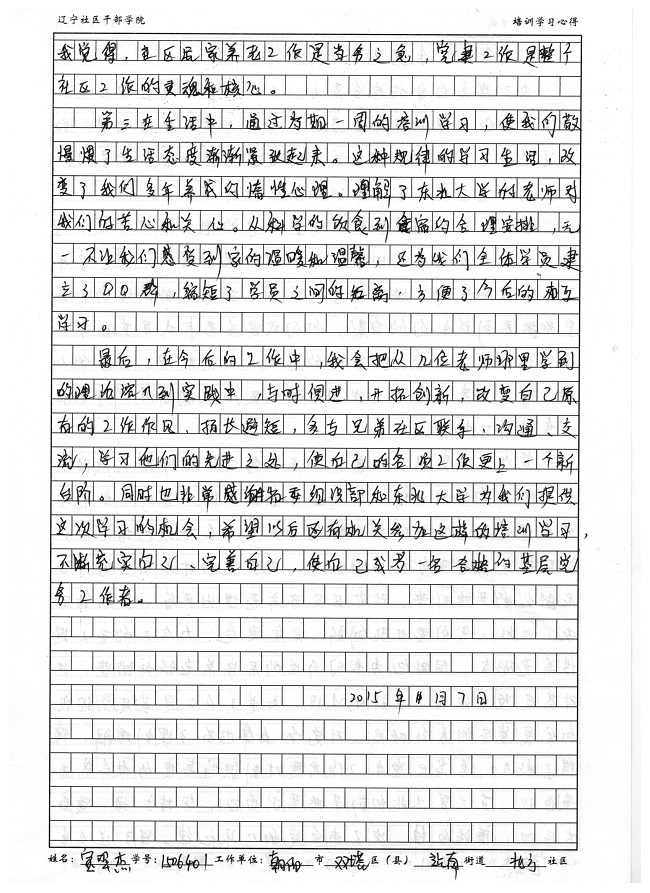 辽宁社区干部学院 培训学习心得
我觉得，社区居家养老工作是当务之急，党建工作是整个
社区工作的灵魂和核心。
第三在生活中，通过为期一周的培训学习，使我们散
漫惯了生活态度渐渐紧张起来。这种规律的学习生活，改
变了我们多年养成的惰性心理。理解了东北大学的老师对
我们的苦心和关心。从科学的饮食到食宿的合理安排，无
一不让我们感受到家的温暖和温馨，还为我们全体学员建
立了QQ群，缩短了学员之间的距离，方便了今后的相互
学习。
最后，在今后的工作中，我会把从几位老师那里学到
的理论深入到实践中，与时俱进，开拓创新，改变自己原
有的工作作风、扬长避短，多与兄弟社区联手、沟通、交
流，学习他们的先进之处，使自己的各项工作更上一个新
台阶。同时也非常感谢市委组织部和东北大学为我们提供
这次学习的机会，希望以后还有机会参加这样的培训学习，
不断充实自己、完善自己，使自己成为一名合格的基层党
务工作者。
2015年11月7日
姓名： 学号：1506401 工作单位：朝阳 市 双塔 区（县） 站南 街道 社区